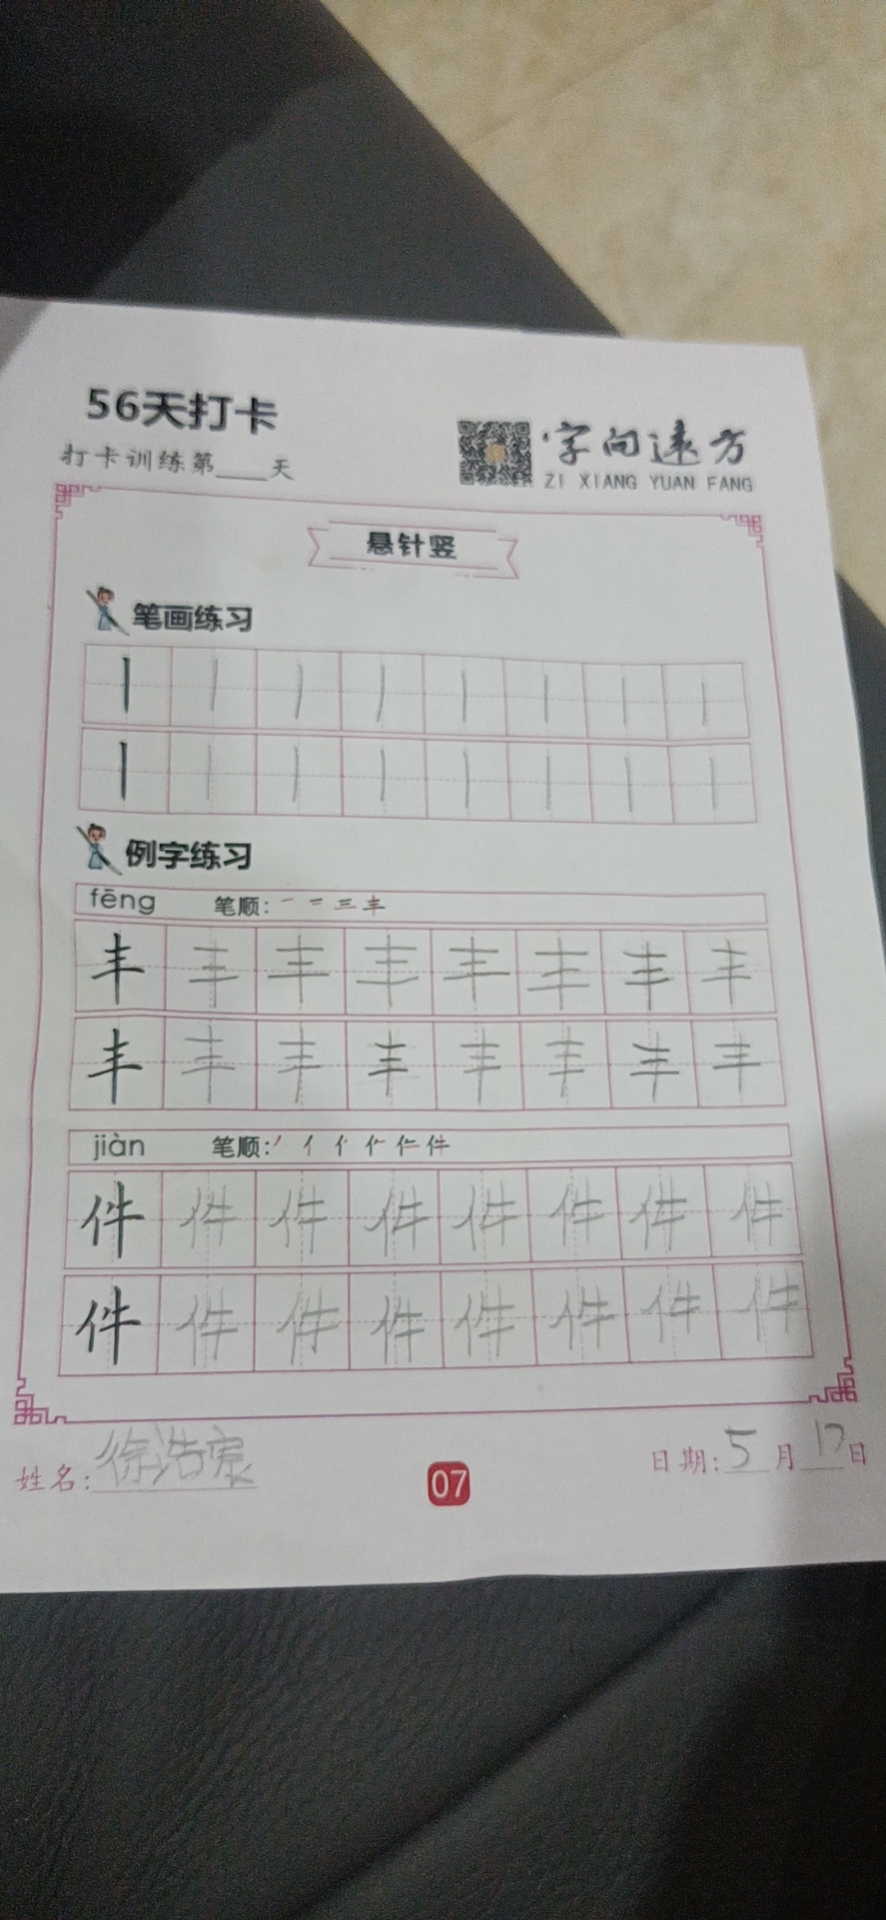 56天打卡
打卡训练第____天
字向远方
ZI XIANG YUAN FANG
悬针竖
笔画练习
丨 丨 丨 丨 丨 丨 丨 丨
丨 丨 丨 丨 丨 丨 丨 丨
例字练习
fēng 笔顺: 一 二 三 丰
丰 丰 丰 丰 丰 丰 丰 丰
丰 丰 丰 丰 丰 丰 丰 丰
jiàn 笔顺: 丿 亻 件
件 件 件 件 件 件 件 件
件 件 件 件 件 件 件 件
姓名: 徐浩
07
日期: 5月17日